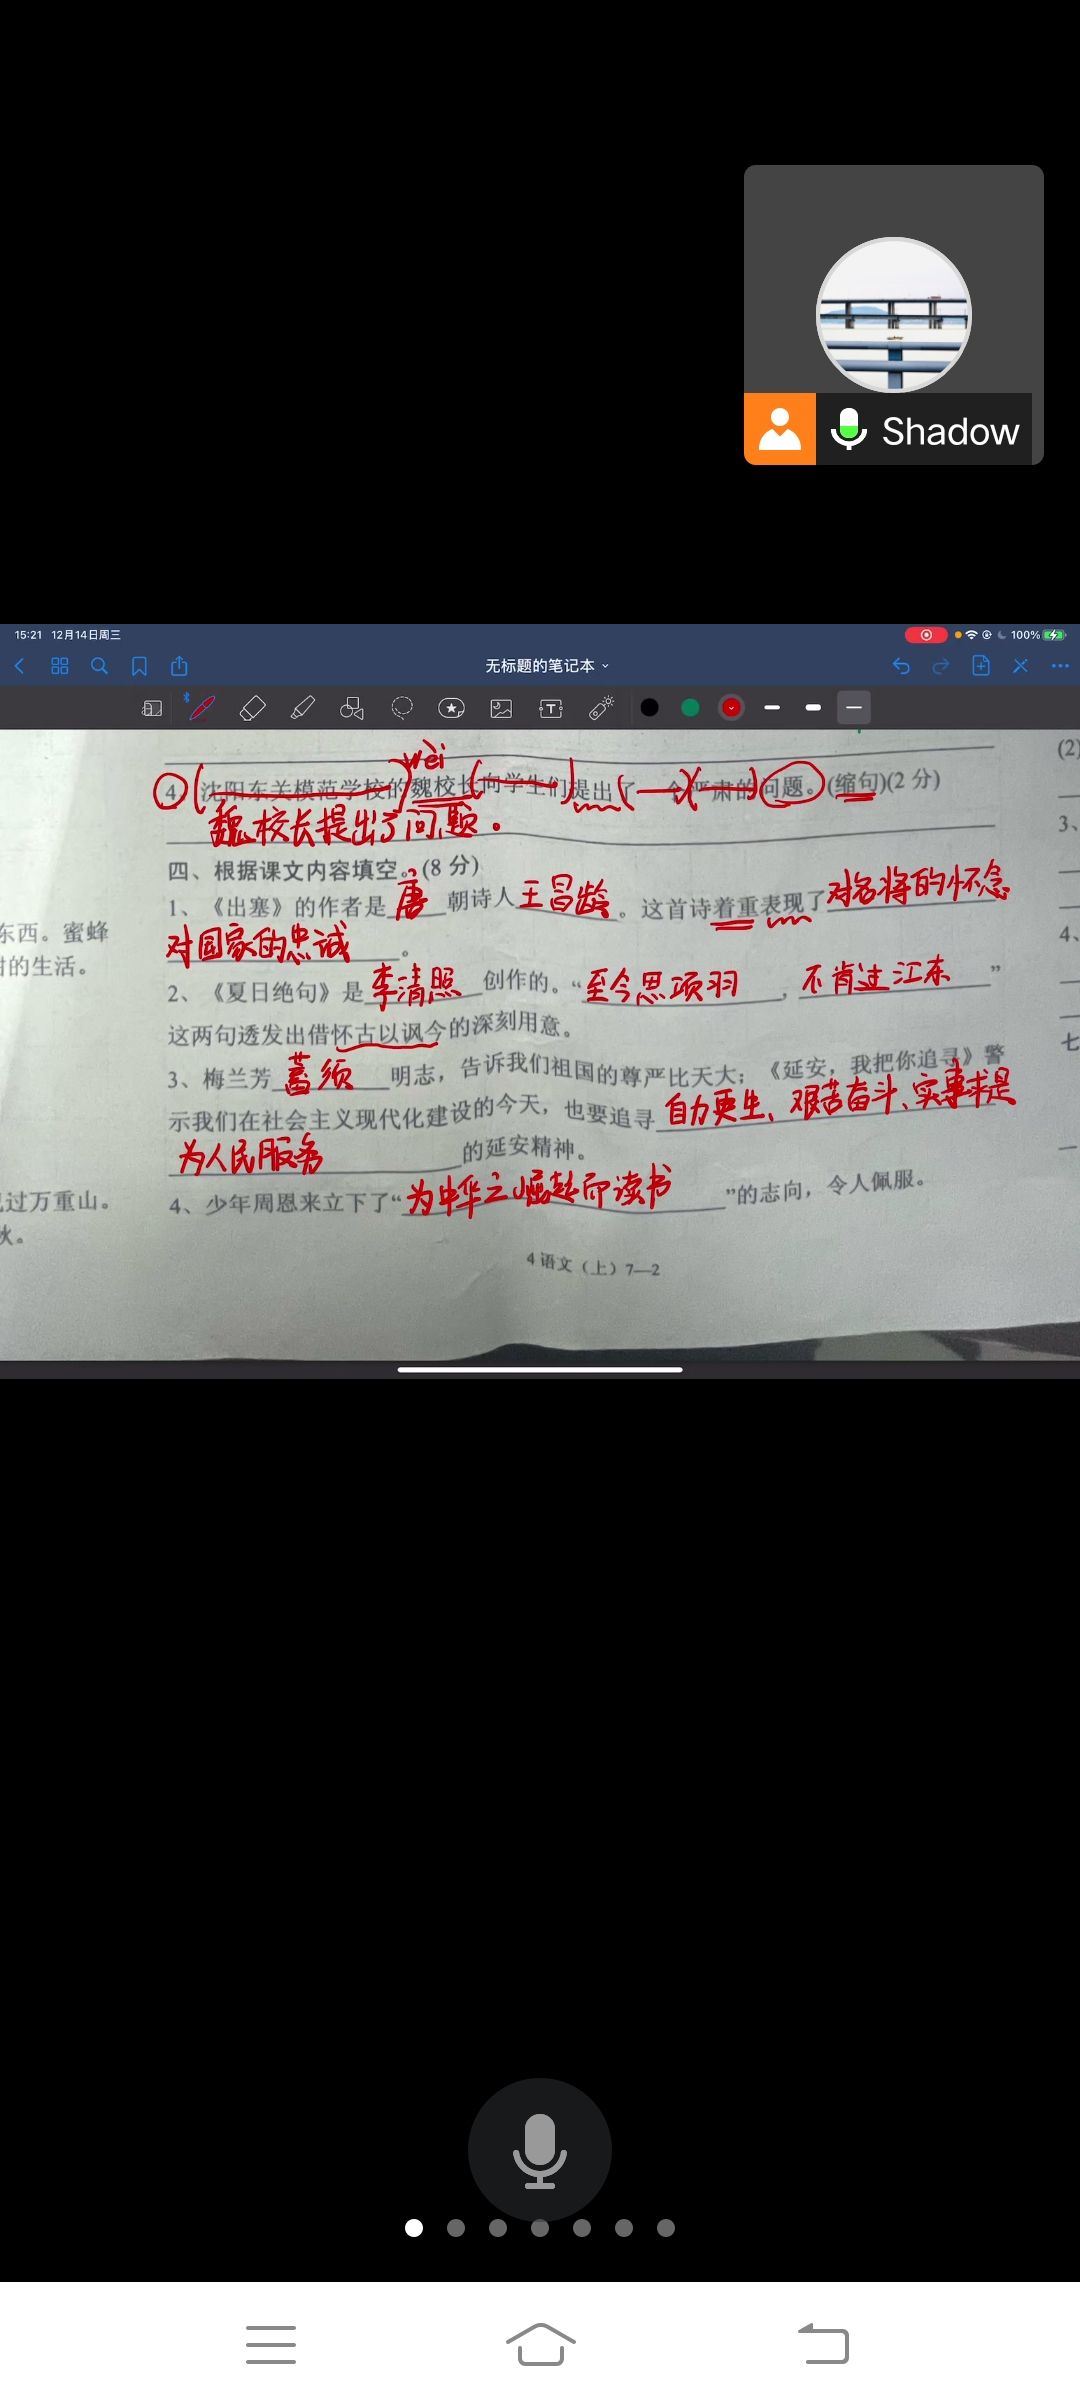 Shadow
15:21 12月14日周三
100%
无标题的笔记本
wèi
4 沈阳东关模范学校的魏校长向学生们提出了一个严肃的问题。(缩句)(2分)
魏校长提出了问题。
四、根据课文内容填空。(8分)
1、《出塞》的作者是唐朝诗人王昌龄。这首诗着重表现了对名将的怀念
对国家的忠诚。
2、《夏日绝句》是李清照创作的。“至今思项羽，不肯过江东”
这两句透发出借怀古以讽今的深刻用意。
3、梅兰芳蓄须明志，告诉我们祖国的尊严比天大；《延安，我把你追寻》警
示我们在社会主义现代化建设的今天，也要追寻自力更生、艰苦奋斗、实事求是
为人民服务的延安精神。
4、少年周恩来立下了“为中华之崛起而读书”的志向，令人佩服。
4语文（上）7—2
东西。蜜蜂
的生活。
过万重山。
秋。
(2)
3、
4、
七